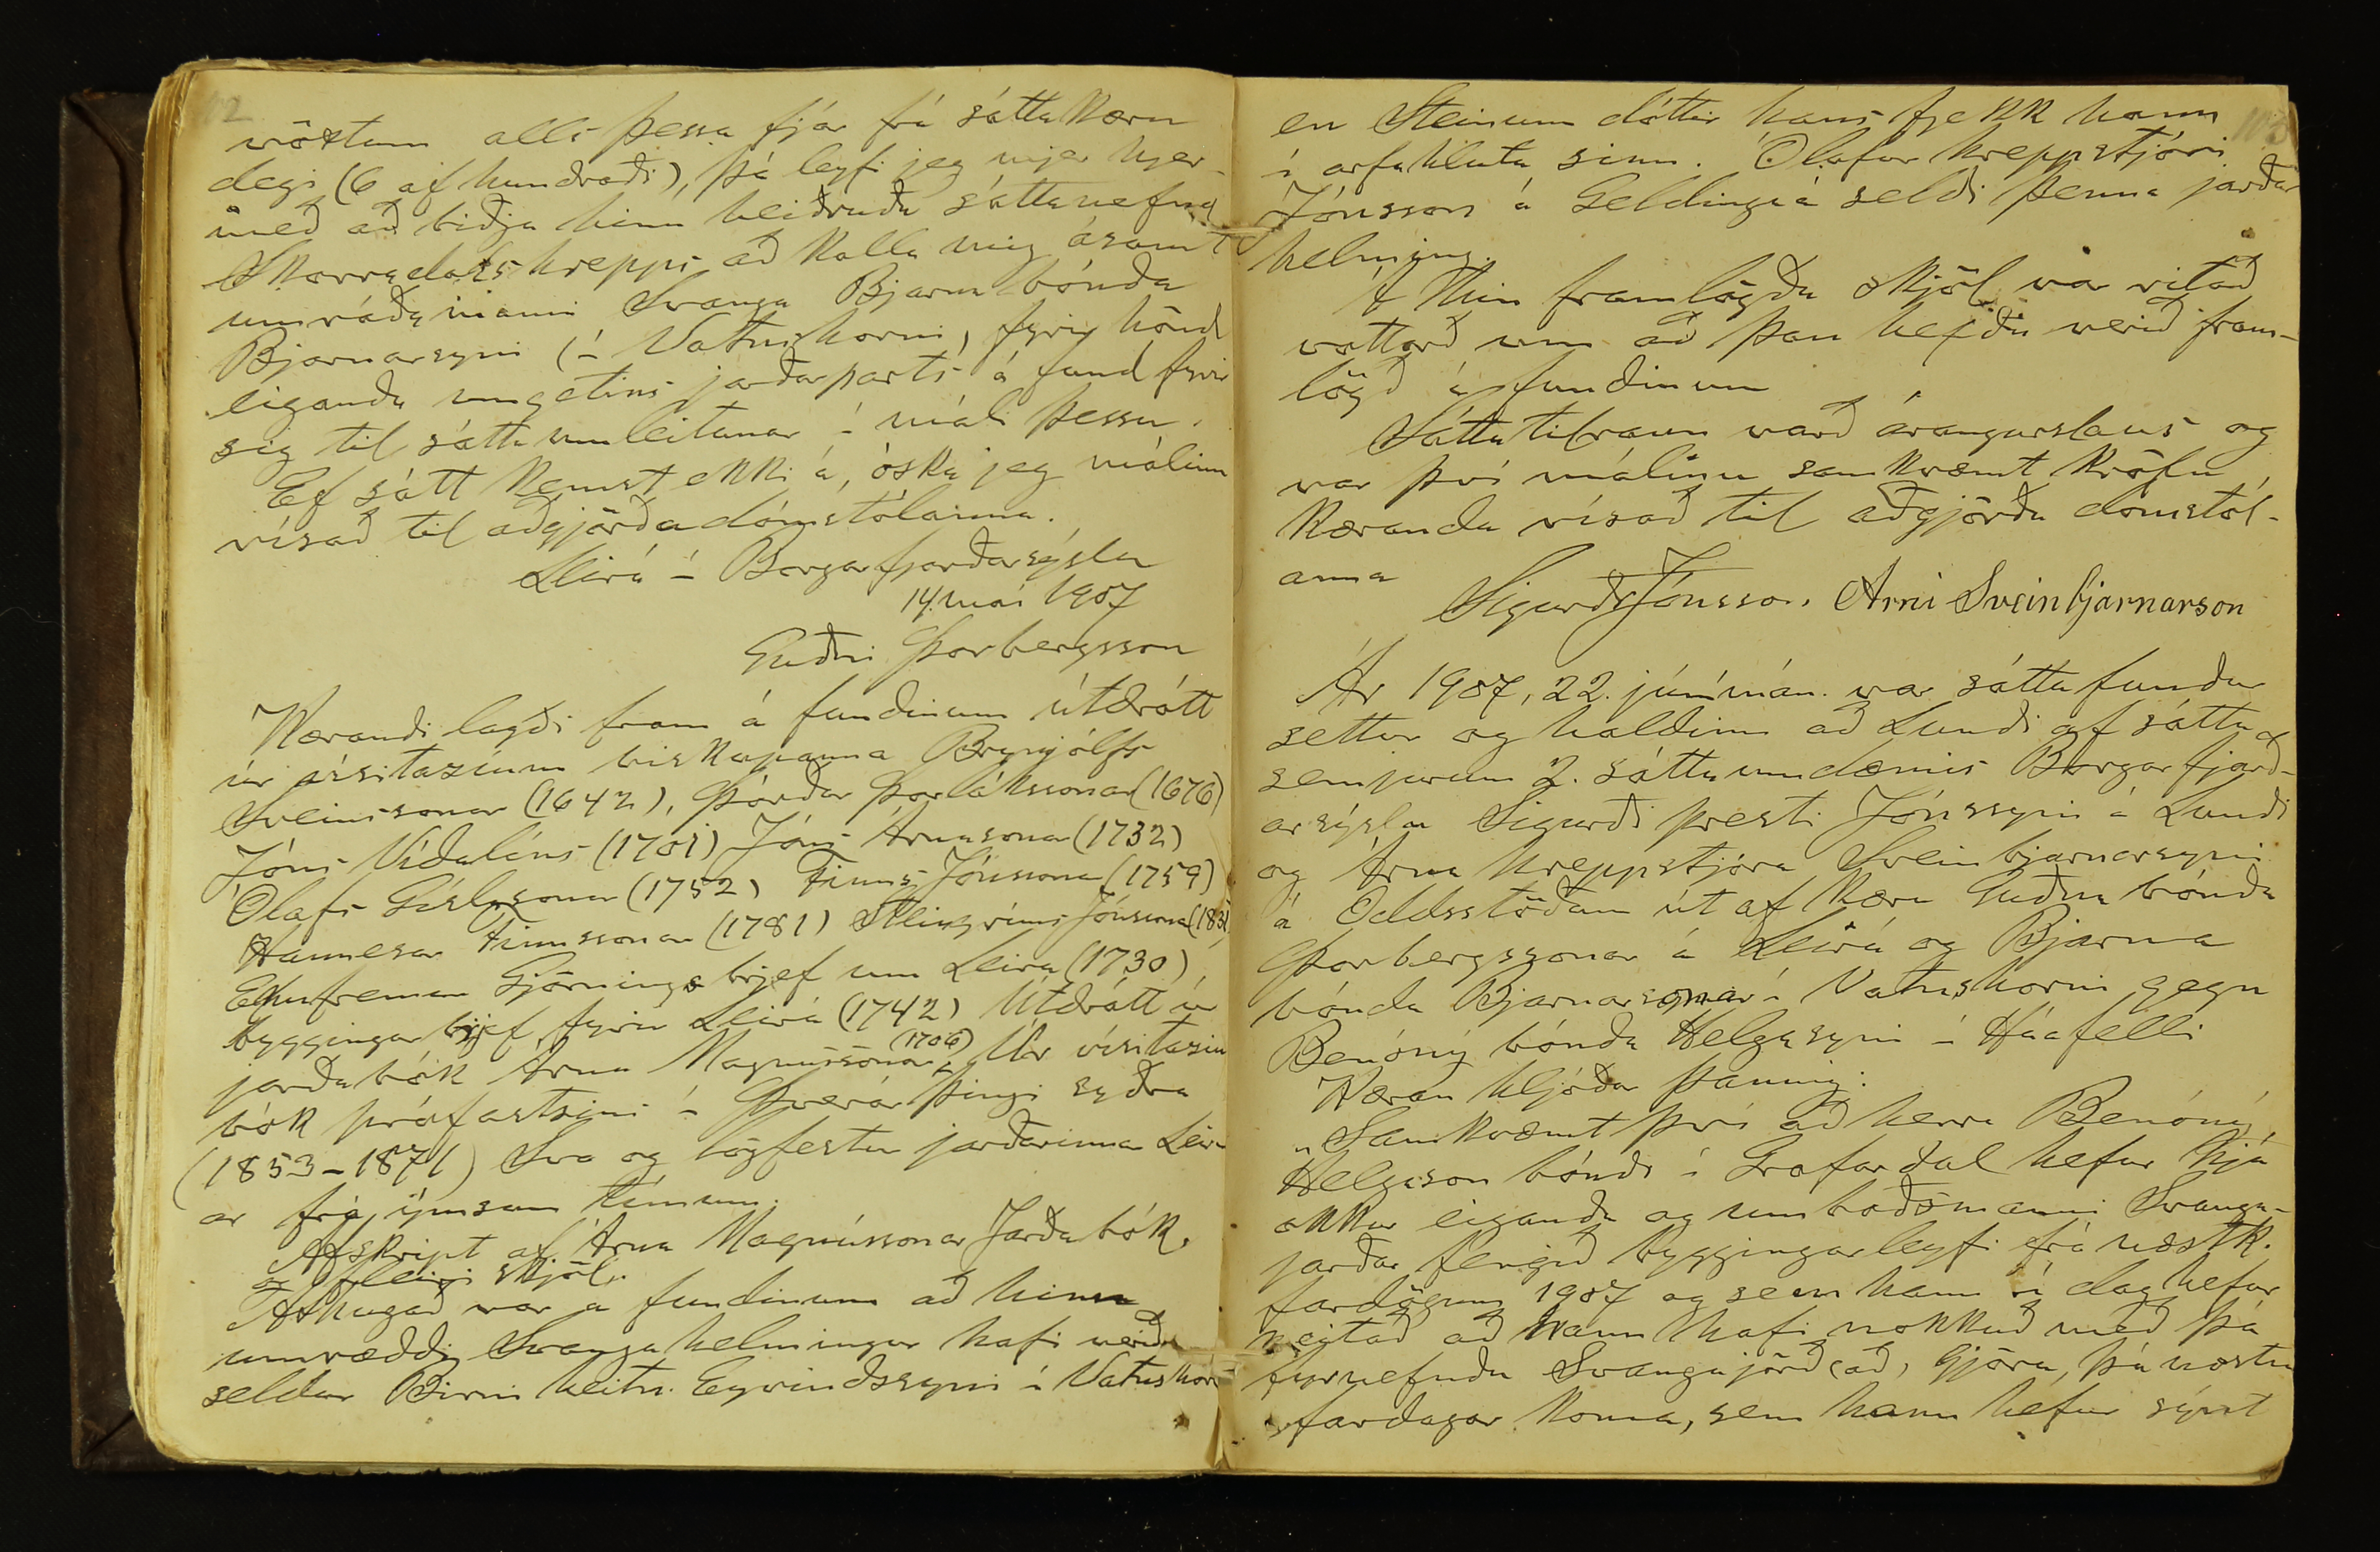 102
vöxtum alls þessa fjár frá sáttakæru
degi (6 af hundraði), þá leyfi jeg mjer hjer-
með að biðja hina heiðruðu sáttanefnd
Skorradalshrepps að kalla mig ásamt
umráðamanni Svanga Bjarna bónda
Bjarnarsyni í Vatnshorni, fyrir hönd
eiganda umgetins jarðarparts á fund fyrir
sig til sáttaumleitunar í máli þessu.
Ef sátt kemst ekki á, óska jeg málinu
vísað til aðgjörða dómstólanna.
Leirá í Borgarfjarðarsýslu
14. maí 1907
Guðni Þorbergsson
Kærandi lagði fram á fundinum útdrátt
úr vísitazíum biskupanna Brynjólfs
Sveinssonar (1642), Þórðar Þorlákssonar (1676)
Jóns Vídalíns (1701) Jóns Árnasonar (1732)
Ólafs Gíslasonar (1752) Finns Jónssonar (1759)
Hannesar Finnssonar (1781) Steingríms Jónssonar (183
Ennfremur Gjörningsbrjef um Leirá (1730),
byggingarbrjef fyrir Leirá (1742) Útdrátt úr
jarðabók Árna Magnússonar (1706) Úr vísitazíu
bók prófastsins í Þverárþingi syðra
(1853-1871) Svo og lögfestur jarðarinnar Leir
ar frá ýmsum tímum.
Afskript af Árna Magnússonar Jarðabók.
og fleiri skjöl.
Athugað var á fundinum að hinn
umræddi Svangahelmingur hafi verið
seldur Birni heitn. Eyvindssyni í Vatnshorn
103
en Steinunn dóttir hans fjekk hann
í arfahluta sinn. Ólafur hreppstjóri
Jónsson á Geldingaá seldi þenna jarðar
helming.
Á hin framlögðu skjöl var ritað
vottorð um að þau hefðu verið fram-
lögð á fundinum
Sáttatilraun varð árangurslaus og
var því málinu samkvæmt kröfu
kæranda vísað til aðgjörða dómstól-
anna
Sigurður Jónsson. Árni Sveinbjarnarson
Ár 1907, 22. júnímán. var sáttafundur
settur og haldinn að Lundi af sátta
semjurum 2. sáttaumdæmis Borgarfjarð-
arsýslu Sigurði presti Jónssyni á Lundi
og Árna hreppstjóra Sveinbjarnarsyni
á Oddsstöðum út af kæru Guðna bónda
Þorbergssonar á Leirá og Bjarna
bónda Bjarnarsonar í Vatnshorni gegn
Benóný bónda Helgasyni í Háafelli
Kæran hljóðar þannig:
„Samkvæmt því að herra Benóný
Helgason bóndi í Grafardal hefur hjá
okkur eiganda og umboðsmanni Svanga-
jarðar fengið byggingarleyfi frá næstk.
fardögum 1907 og sem hann í dag hefur
neitað að hann hafi nokkuð með þá
fyrnefndu Svangajörð að gjöra, þá næstu
fardagar koma, sem hann hefur sýnt